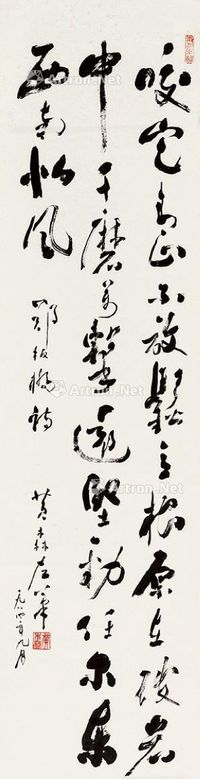 咬定青山不放鬆立根原在破岩
中千磨萬擊還堅勁任尔東
西南北風
鄭板橋詩
左筆
九月